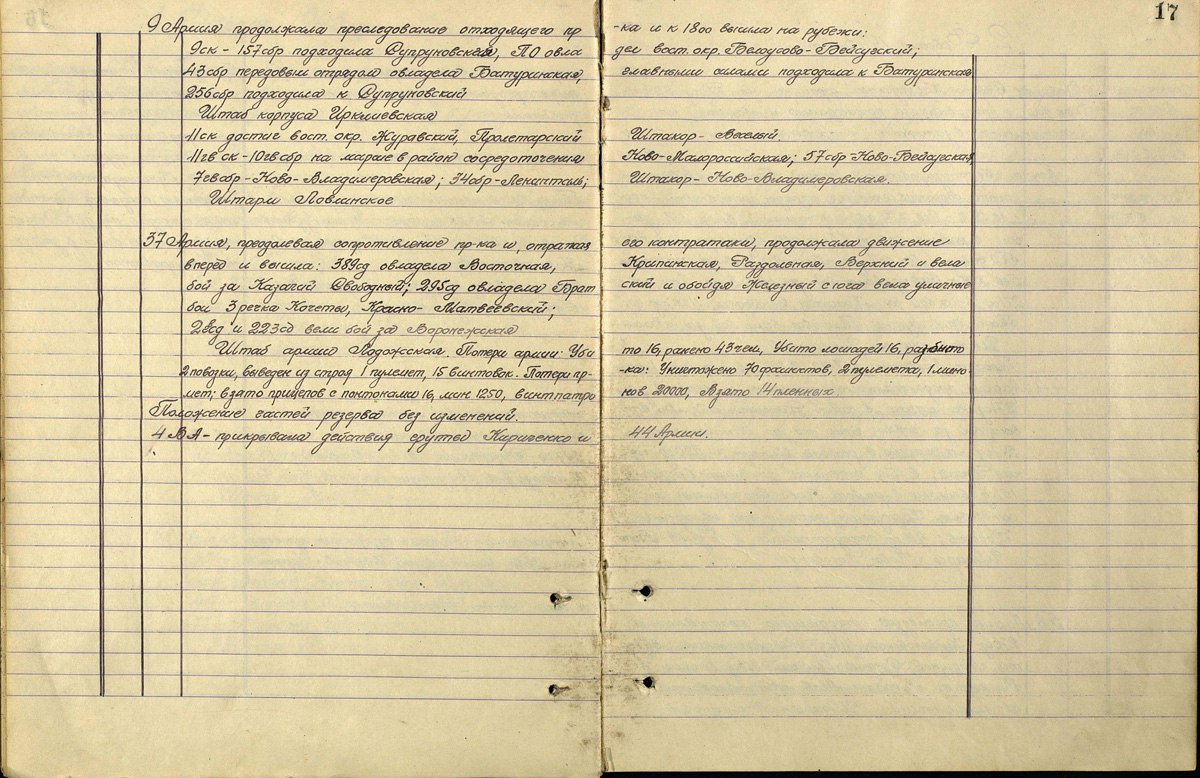 17
9 Армия продолжала преследование отходящего пр-ка и к 18оо вышла на рубежи:
9ск - 157сбр подходила Супруновский, ПО овладел вост. окр. Белоусово - Бейсугский;
43сбр передовым отрядом овладела Батуринская, главными силами подходила к Батуринская
256сбр подходила к Супруновский
Штаб корпуса Ирклиевская
11ск достиг вост. окр. Журавский, Пролетарский Штакор - Веселый.
11гв ск - 10гв сбр на марше в район сосредоточения Ново-Малороссийская; 57сбр - Ново-Бейсугская
7гвсбр - Ново-Владимеровская; 34сбр - Ленинталь; Штакор - Ново-Владимеровская.
Штарм Ловлинское
37 Армия, преодолевая сопротивление пр-ка и, отражая его контратаки, продолжала движение
вперед и вышла: 389сд овладела Восточная, Крипинская, Раздольная, Верхний и вела
бой за Казачий Свободный; 295сд овладела Братский и обойдя Железный с юга вела уличные
бои 3 речка Кочеты, Красно - Матвеевский;
2гсд и 223сд вели бой за Воронежская
Штаб армии Ладожская. Потери армии: Убито 16, ранено 43 чел, Убито лошадей 16, разбито
2 повозки, выведен из строя 1 пулемет, 15 винтовок. Потери пр-ка: Уничтожено 70 фашистов, 2 пулемета, 1 мино-
мет; взято прицепов с понтонами 16, мин 1250, винтпатронов 20000, Взято 14 пленных.
Положение частей резерва без изменений.
4 ВА - прикрывала действия группы Кириченко и 44 Армии.